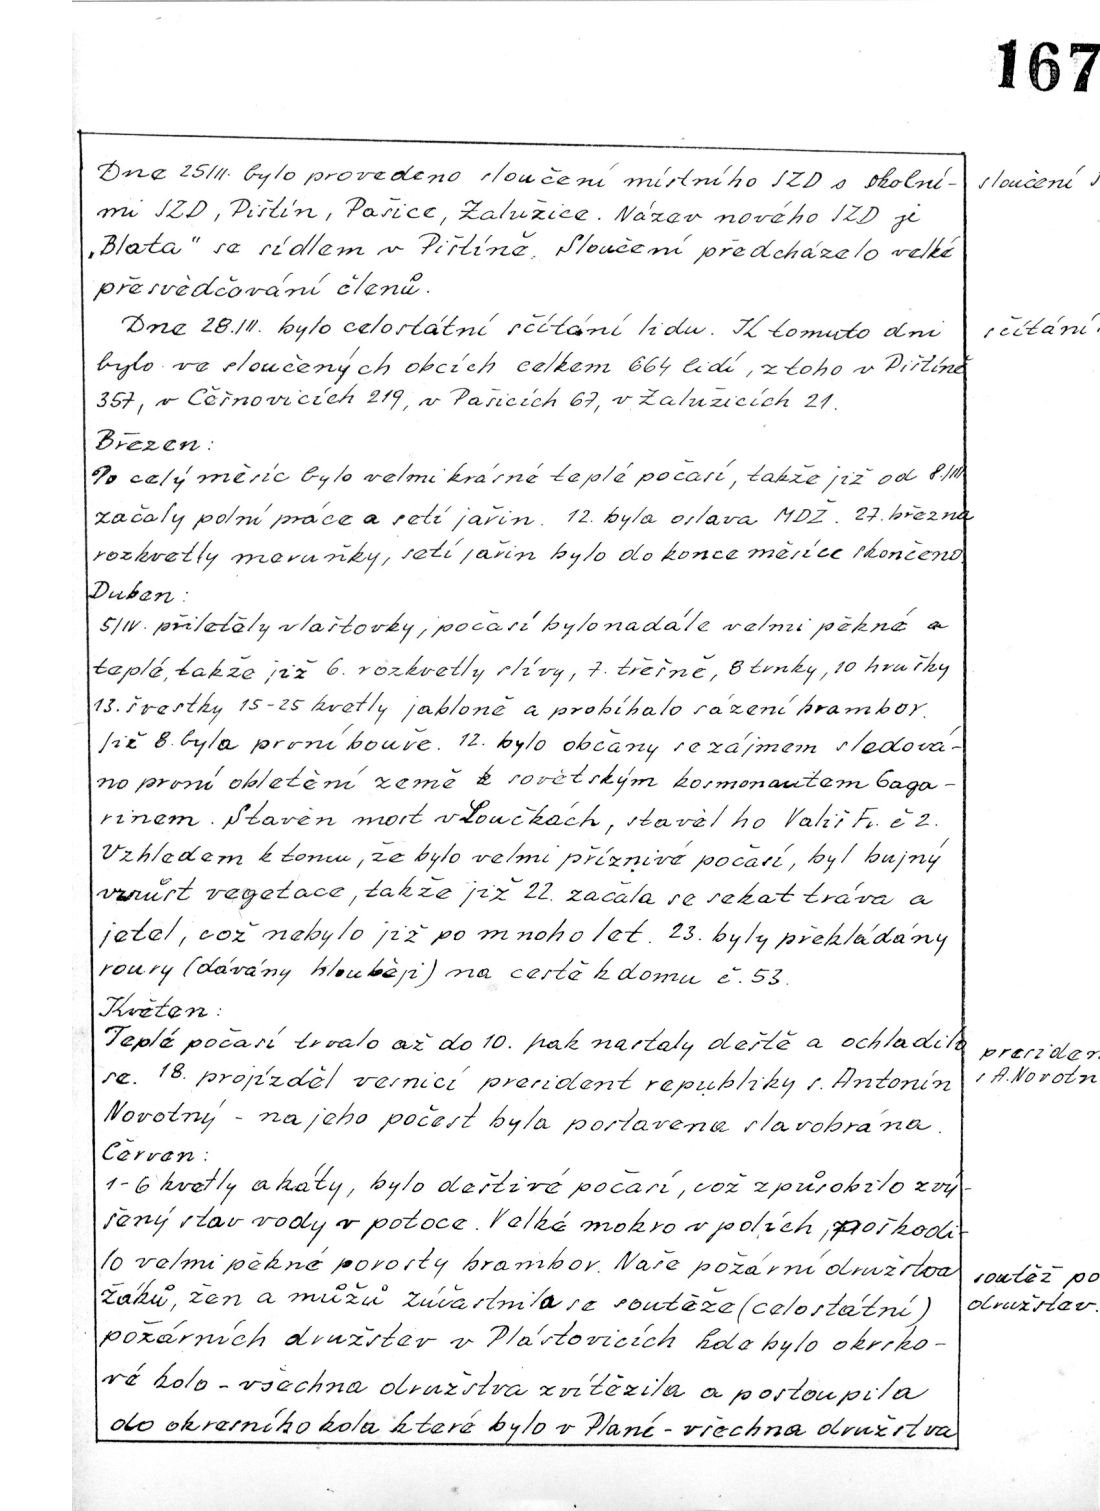 167
Dne 25/II. bylo provedeno sloučení místního JZD s okolní-
mi JZD, Pištín, Pašice, Zalužice. Název nového JZD je
„Blata" se sídlem v Pištíně. Sloučení předcházelo velké
přesvědčování členů.
Dne 28.III. bylo celostátní sčítání lidu. K tomuto dni
bylo ve sloučených obcích celkem 664 lidí, z toho v Pištíně
357, v Češnovicích 219, v Pašicích 67, v Zalužicích 21.
Březen:
Po celý měsíc bylo velmi krásné teplé počasí, takže již od 8/III
začaly polní práce a setí jařin. 12. byla oslava MDŽ. 27. března
rozkvetly meruňky, setí jařin bylo do konce měsíce skončeno.
Duben:
5/IV. přiletěly vlaštovky, počasí bylo nadále velmi pěkné a
teplé, takže již 6. rozkvetly slívy, 7. třešně, 8 trnky, 10 hrušky
13. švestky 15-25 kvetly jabloně a probíhalo sázení brambor.
Již 8. byla první bouře. 12. bylo občany se zájmem sledová-
no první obletění země sovětským kosmonautem Gaga-
rinem. Stavěn most v Loučkách, stavěl ho Vališ Fr. č 2.
Vzhledem k tomu, že bylo velmi příznivé počasí, byl bujný
vzrůst vegetace, takže již 22. začala se sekat tráva a
jetel, což nebylo již po mnoho let. 23. byly překládány
roury (dávány hlouběji) na cestě k domu č. 53.
Květen:
Teplé počasí trvalo až do 10. pak nastaly deště a ochladilo
se. 18. projížděl vesnicí president republiky s. Antonín
Novotný - na jeho počest byla postavena slavobrána.
Červen:
1-6 kvetly akáty, bylo deštivé počasí, což způsobilo zvý-
šený stav vody v potoce. Velké mokro v polích, poškodi-
lo velmi pěkné porosty brambor. Naše požární družstva
žáků, žen a mužů zúčastnila se soutěže (celostátní)
požárních družstev v Plástovicích kde bylo okrsko-
vé kolo - všechna družstva zvítězila a postoupila
do okresního kola které bylo v Plané - všechna družstva
sloučení J
sčítání
presiden
s A. Novotn
soutěž po
družstev.